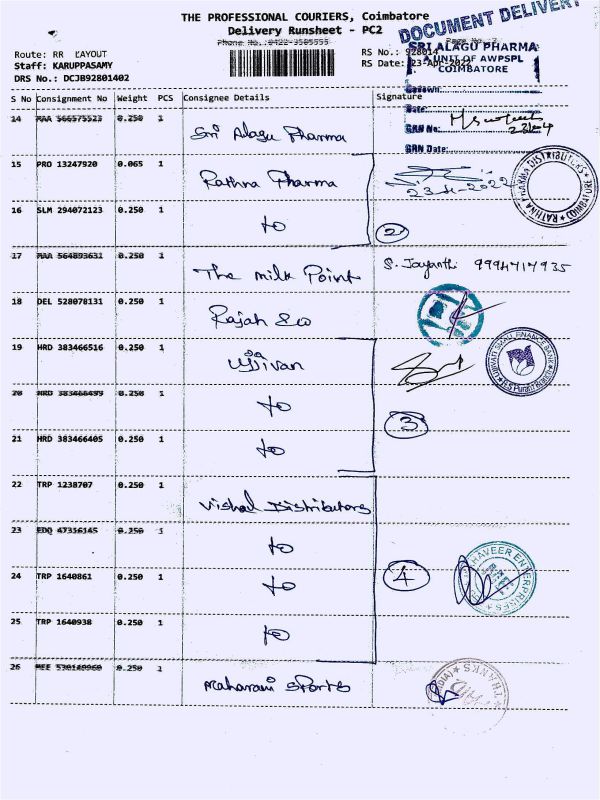 THE PROFESSIONAL COURIERS, Coimbatore
Delivery Runsheet - PC2
Phone No.:0422-3505555
Route: RR LAYOUT
RS No.: 928014
Staff: KARUPPASAMY
RS Date: 23-Apr-2022
DRS No.: DCJB92801402
DOCUMENT DELIVERY
SRI ALAGU PHARMA
A UNIT OF AWPSPL
COIMBATORE
S No Consignment No Weight PCS Consignee Details Signature
Date:
GRN No:
GRN Date:
14 MAA 566575523 0.250 1 Sri Alagu Pharma
15 PRO 13247920 0.065 1 Rathna Pharma
23-4-2022
RATHNA PHARMA DISTRIBUTORS COIMBATORE
16 SLM 294072123 0.250 1 to 2
17 MAA 564893631 0.250 1 The milk Point S. Jayanthi 9994717935
18 DEL 528078131 0.250 1 Rajah & co
19 HRD 383466516 0.250 1 Ujjivan
UJJIVAN SMALL FINANCE BANK
20 HRD 383466499 0.250 1 to
3
21 HRD 383466405 0.250 1 to
22 TRP 1238707 0.250 1 Vishal Distributors
23 EDQ 47316145 0.250 1 to
24 TRP 1640861 0.250 1 to 4
25 TRP 1640938 0.250 1 to
26 MEE 530149960 0.250 1 Maharani Sports
THANKS